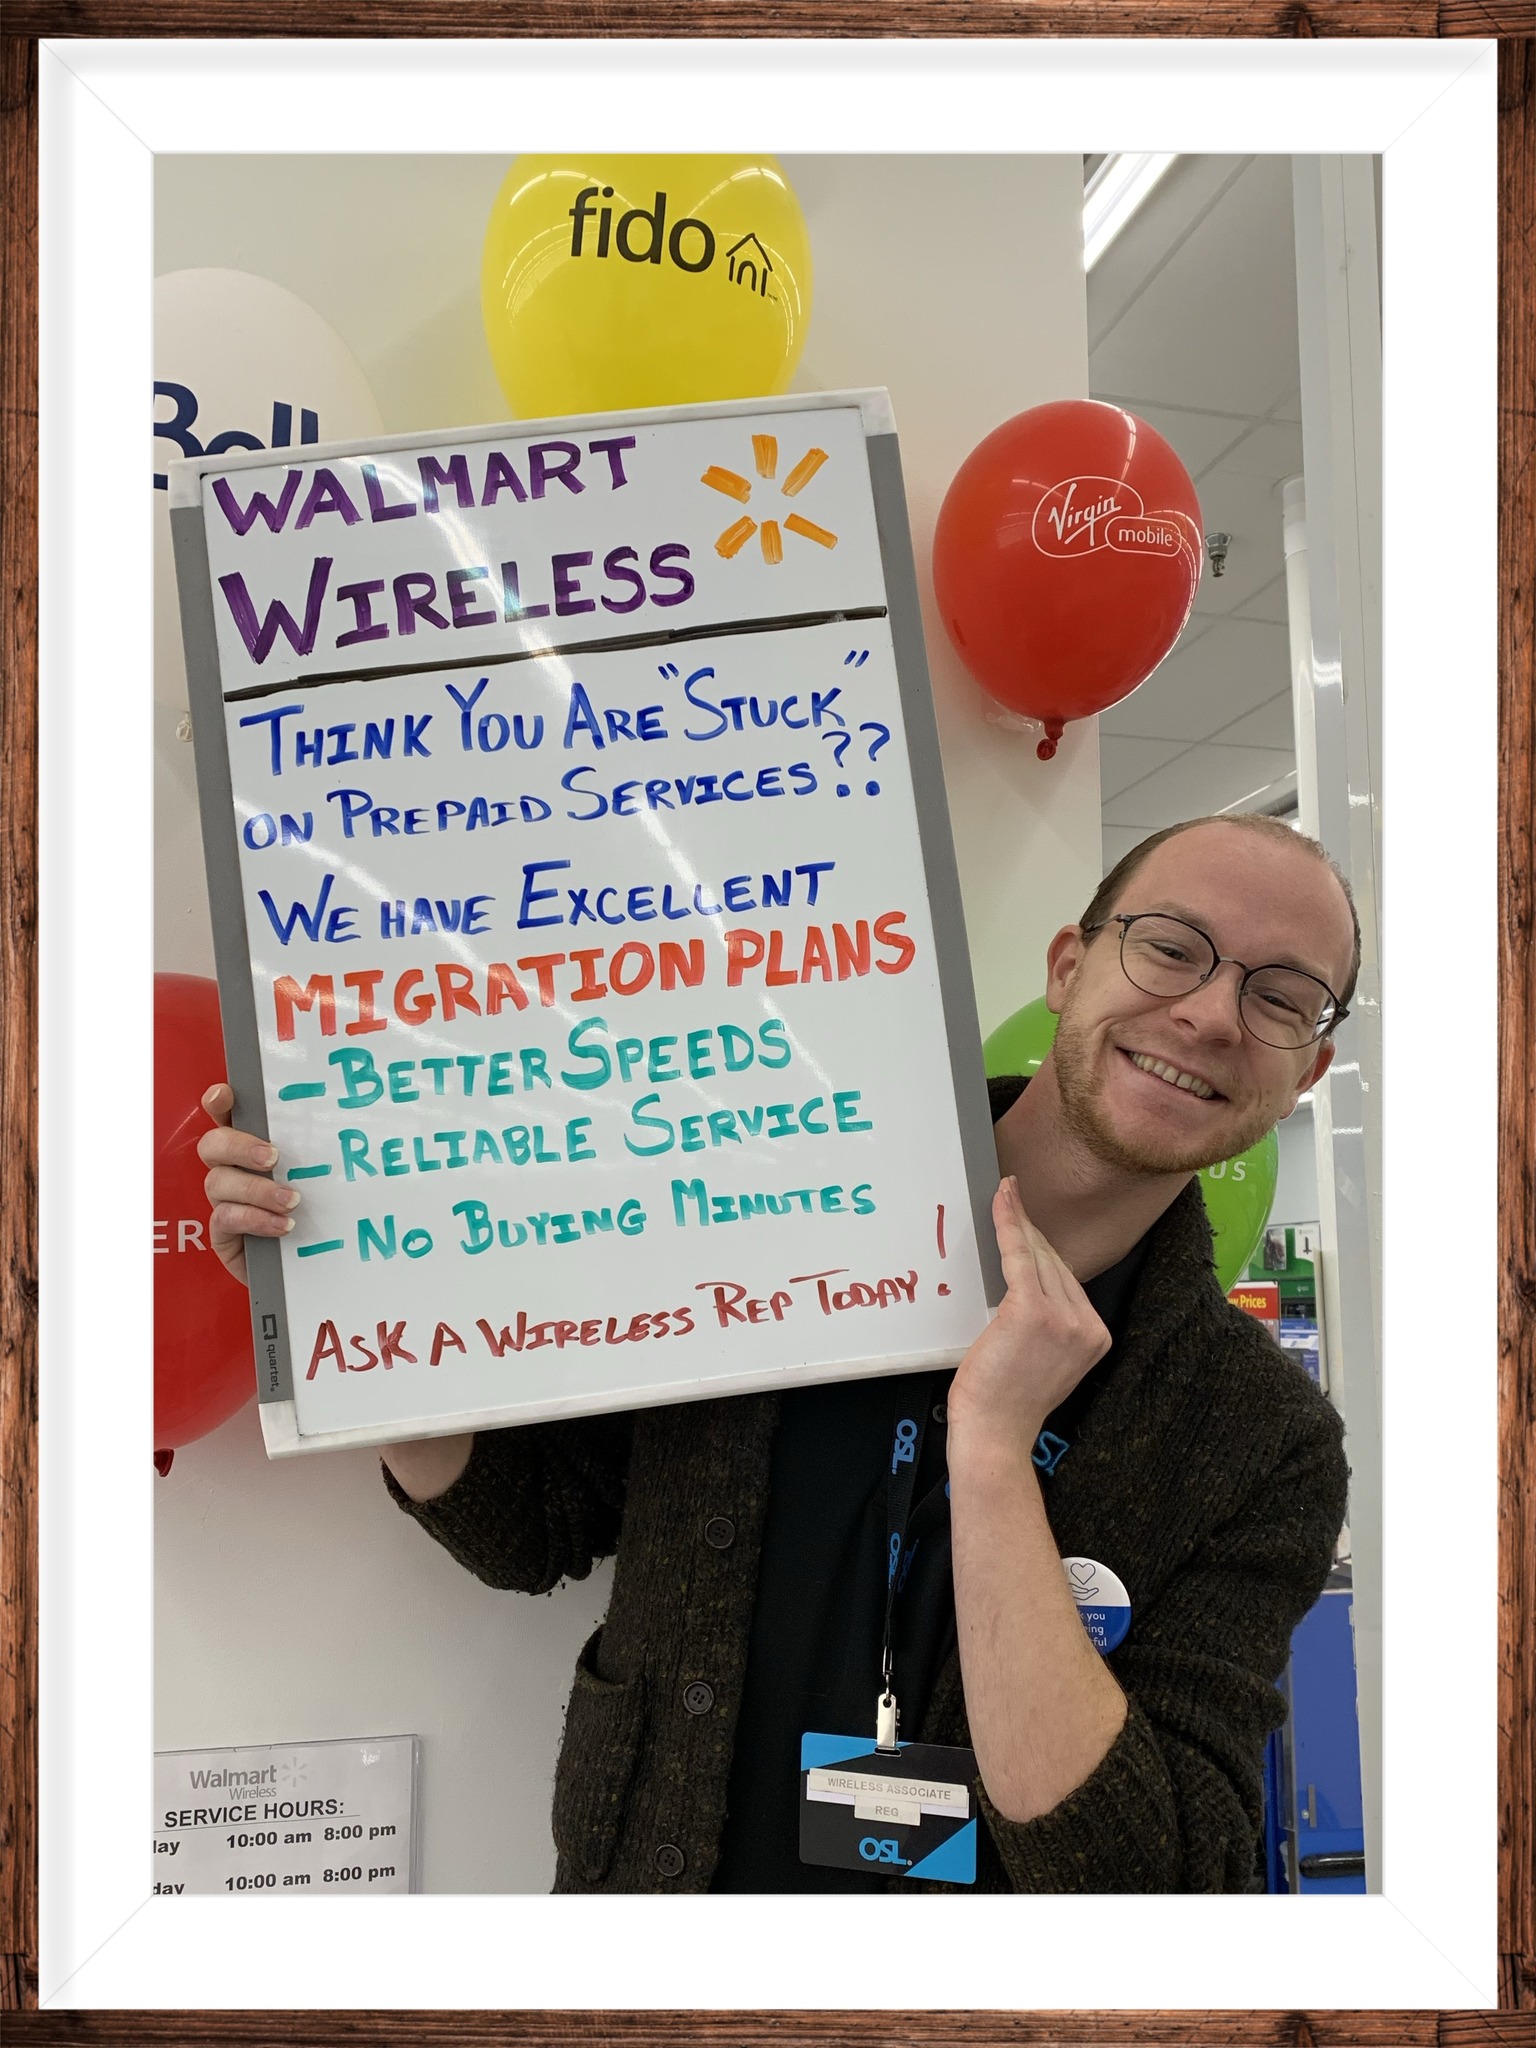 fido
Bell
Virgin
mobile
WALMART
WIRELESS
THINK YOU ARE "STUCK"
ON PREPAID SERVICES??
WE HAVE EXCELLENT
MIGRATION PLANS
-BETTER SPEEDS
-RELIABLE SERVICE
-NO BUYING MINUTES
ASK A WIRELESS REP TODAY!
quartet
ER
US
Prices
OSL.
OSL
you
WIRELESS ASSOCIATE
REG
OSL.
Walmart
Wireless
SERVICE HOURS:
day 10:00 am 8:00 pm
day 10:00 am 8:00 pm